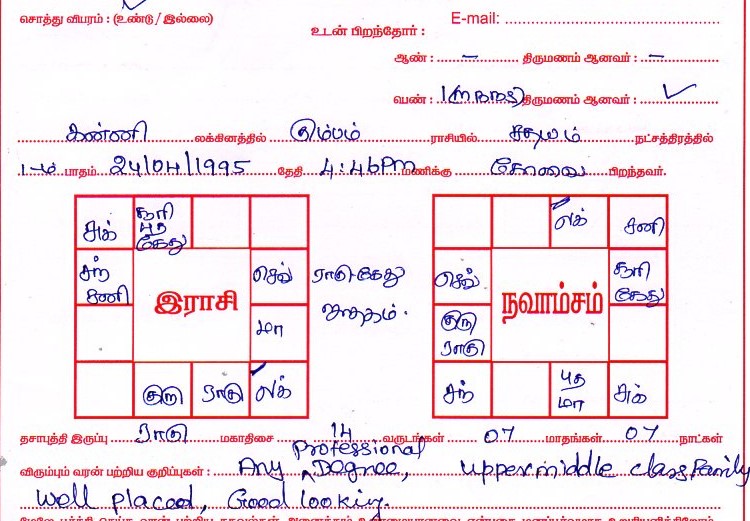 சொத்து விபரம் : (உண்டு / இல்லை)
E-mail:
உடன் பிறந்தோர் :
ஆண் : – திருமணம் ஆனவர் : –
பெண் : 1 (MBBS) திருமணம் ஆனவர் : ✓
கன்னி லக்கினத்தில் கும்பம் ராசியில் சதயம் நட்சத்திரத்தில்
1-ம் பாதம் 24/04/1995 தேதி 4:46 PM மணிக்கு கோவை பிறந்தவர்.
சுக் சூரி புத கேது
லக் சனி
சந் சனி
இராசி
செவ்
ராகு கேது ஜாதகம்.
செவ்
நவாம்சம்
சூரி கேது
மா
குரு ராகு
குரு ராகு லக்
சந் புத மா சுக்
தசாபுத்தி இருப்பு ராகு மகாதிசை 14 வருடங்கள் 07 மாதங்கள் 07 நாட்கள்
விரும்பும் வரன் பற்றிய குறிப்புகள் : Any Professional Degree, upper middle class family
well placed, Good looking.